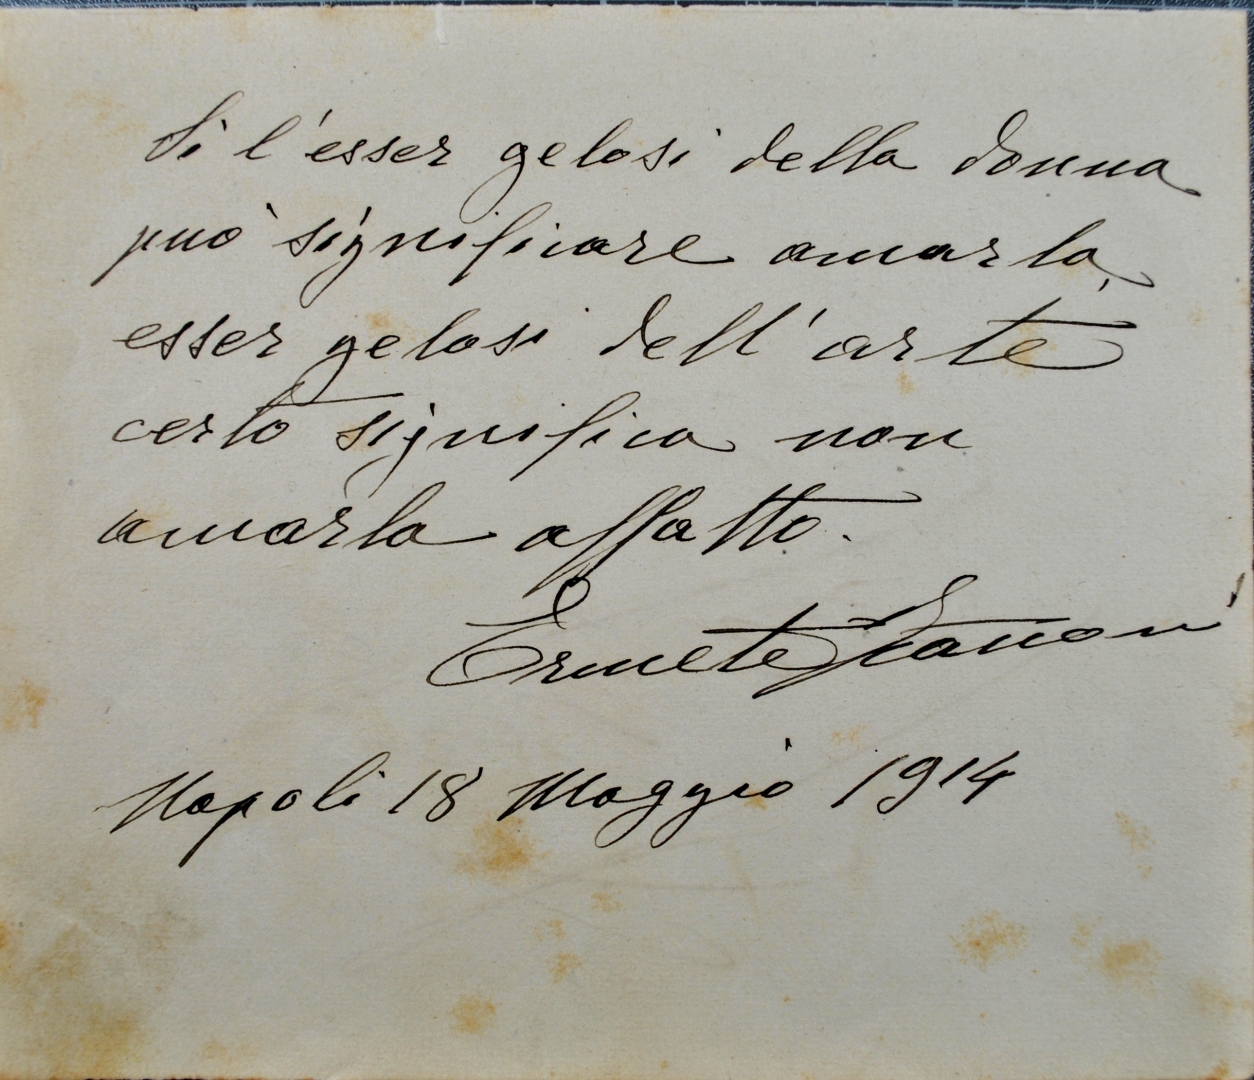 Si l'esser gelosi della donna
può significare amarla,
esser gelosi dell'arte
certo significa non
amarla affatto.
Ermete Zacconi
Napoli 18 Maggio 1914